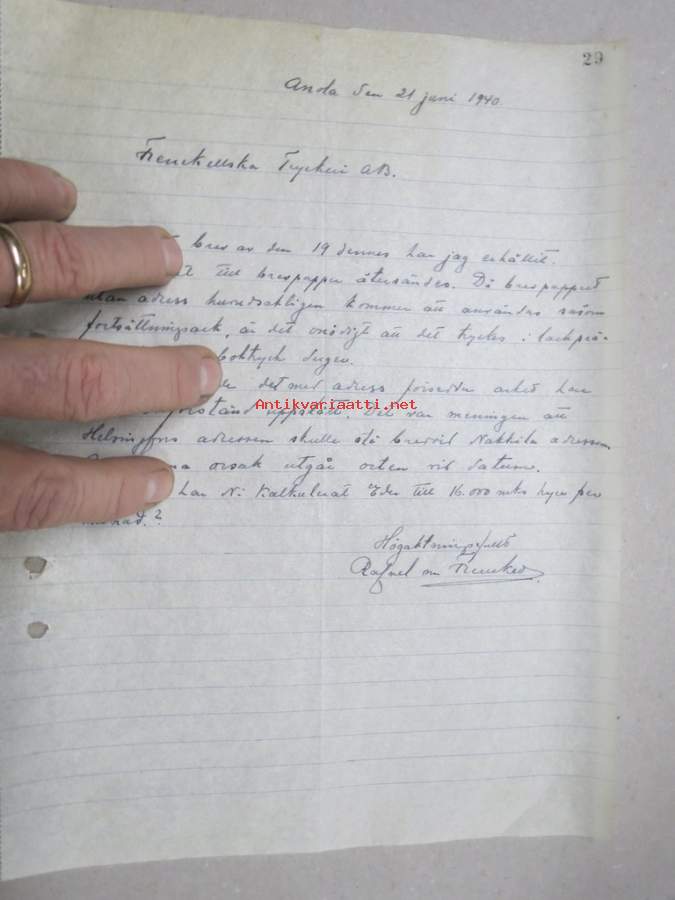 29
Anola den 21 juni 1940.
Frenckellska Tryckeri AB.
brev av den 19 dennes har jag erhållit.
till brevpapper återsändes. Då brevpapperet
utan adress huvudsakligen kommer att användas såsom
fortsättningsark, är det onödigt att det tryckes i
boktryck duger.
det med adress försedda arket har
uppstått. Det var meningen att
Helsingfors adressen skulle stå bredvid Nakkila adressen.
orsak utgår orten vid datum.
har Ni kalkulerat Eder till 16.000 mks hyra per
månad?
Antikvariaatti.net
Högaktningsfullt
Rafael von Frenckell